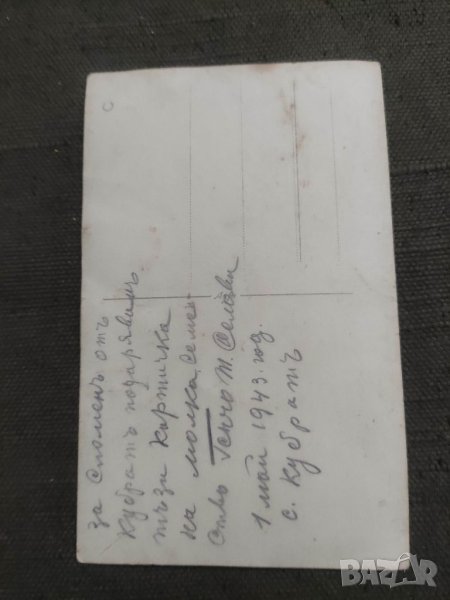 за Споменъ отъ
Кубратъ подарявамъ
тъзи картичка
на молка. Семей-
ство Генчо Т.
1 май 1943 год.
с. Кубратъ
BAZAR.BG